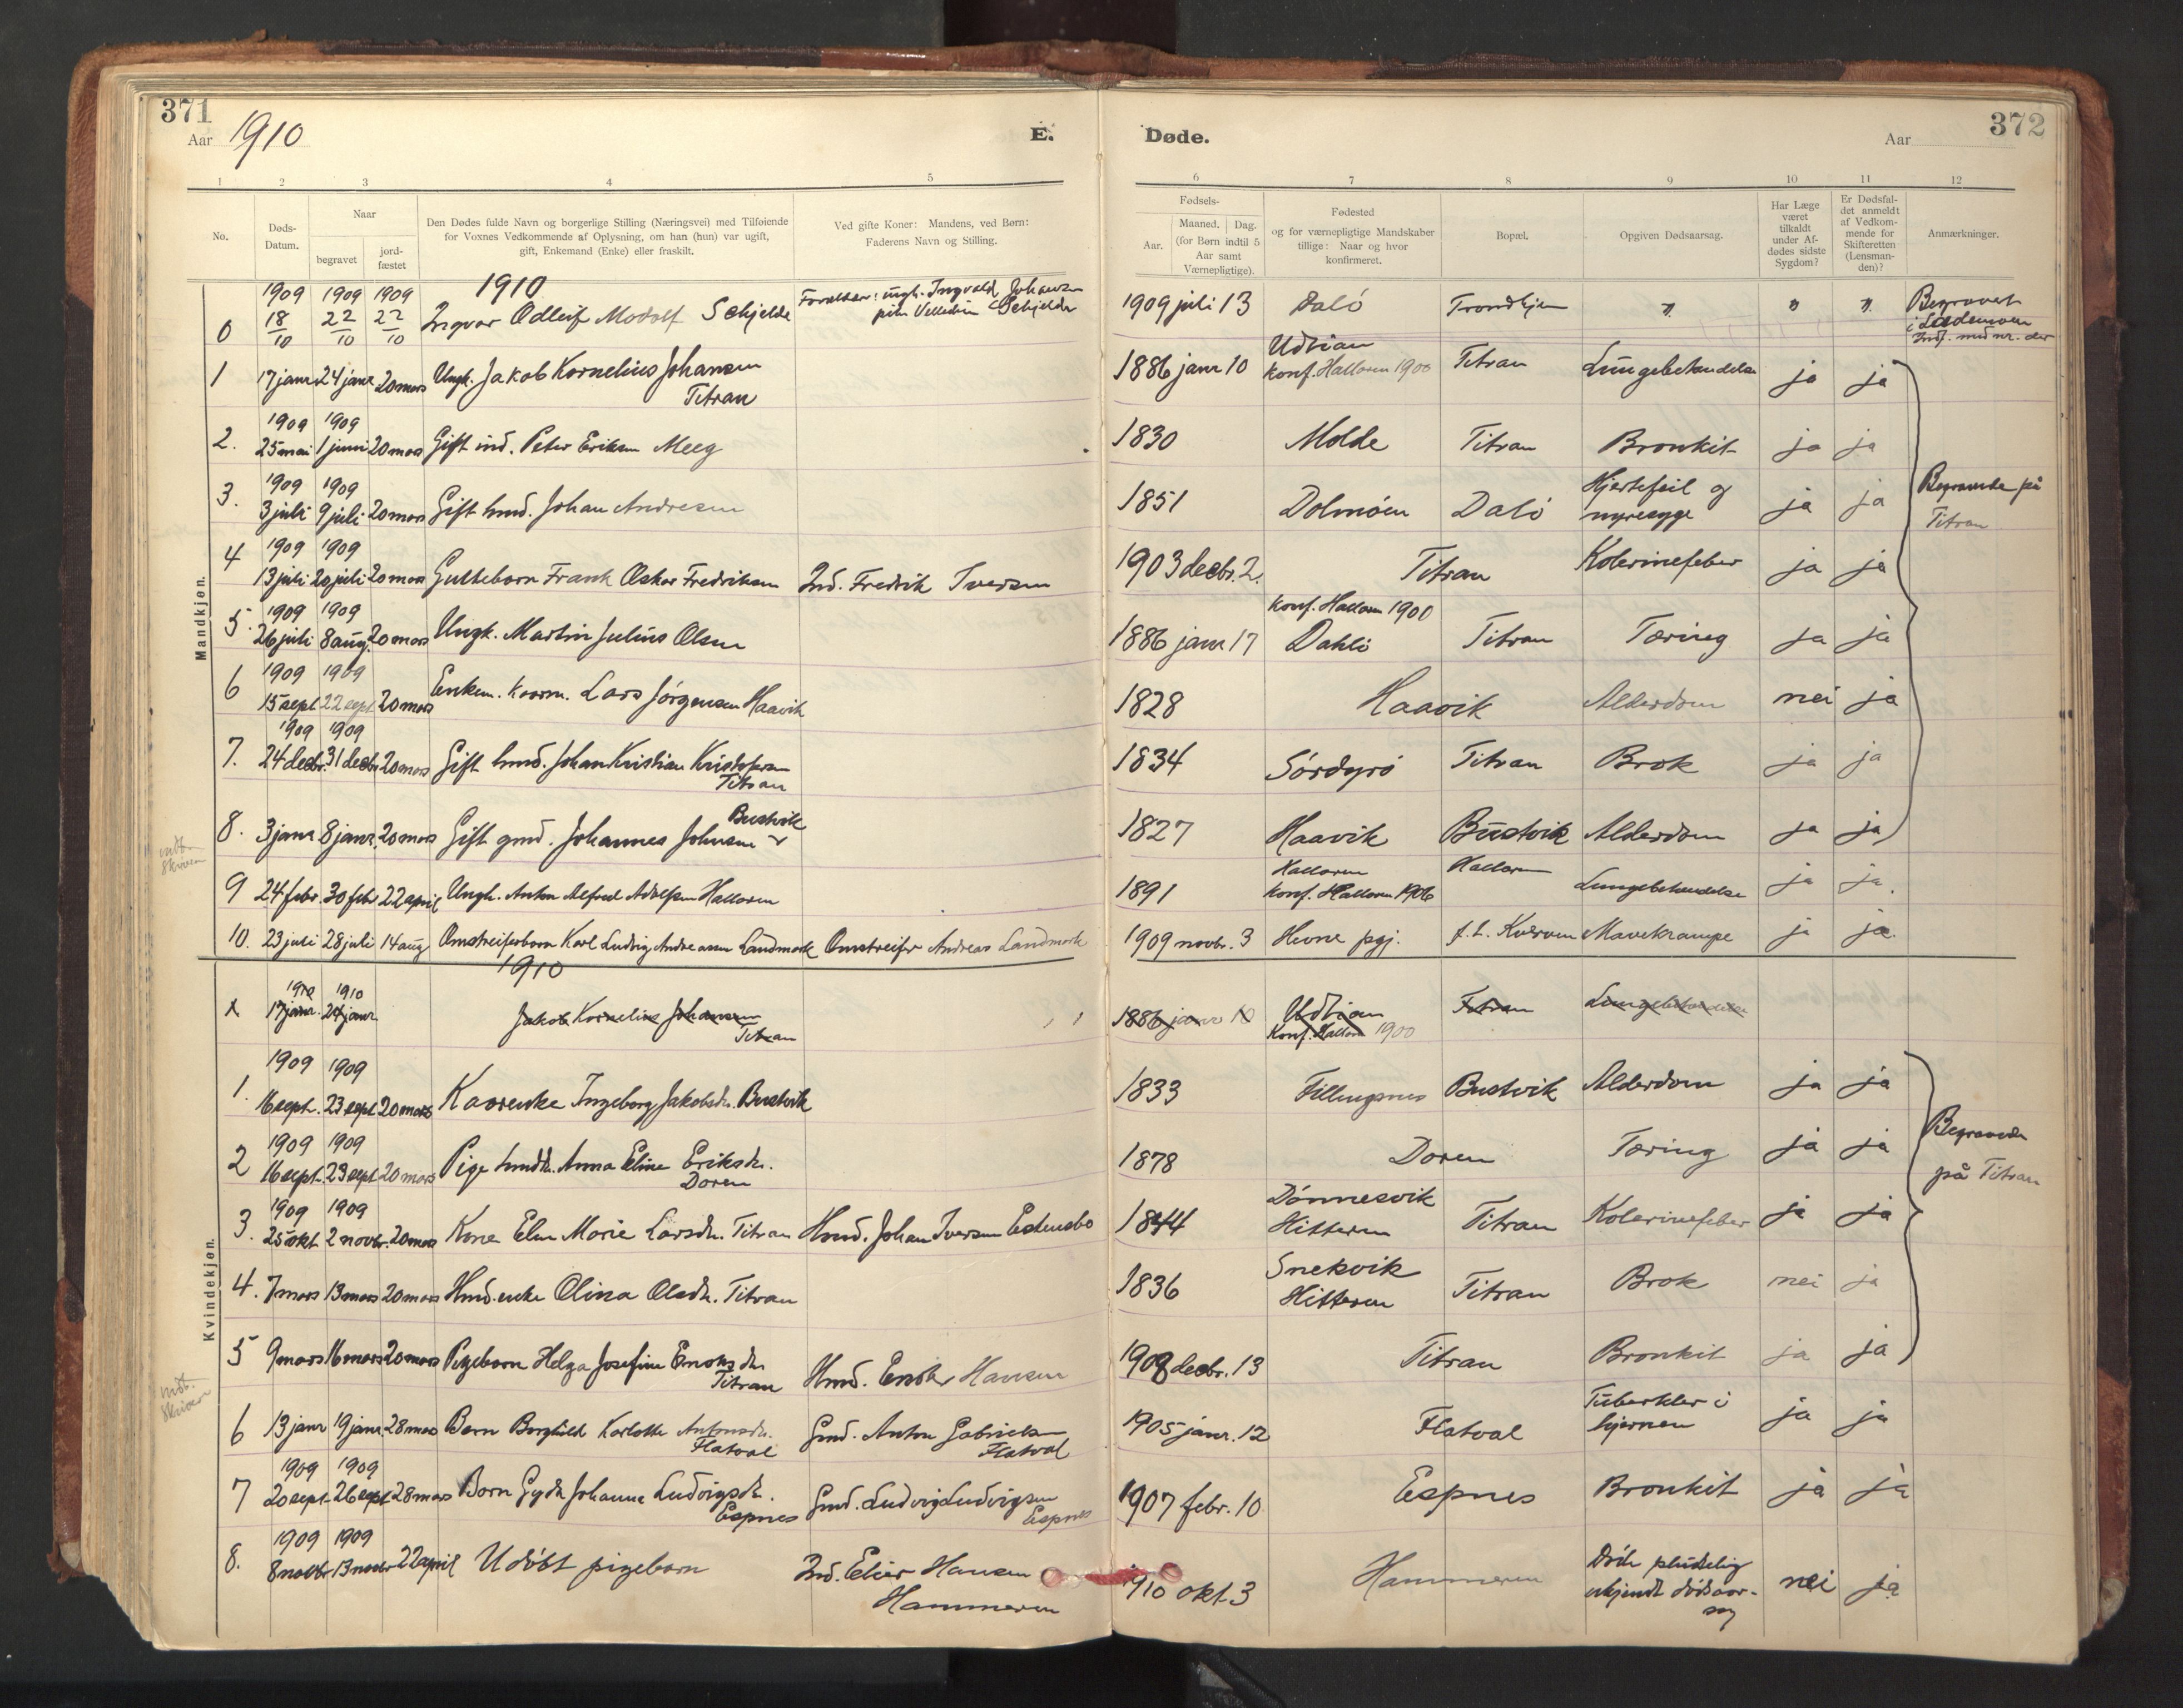 371
Aar 1910
E.
1 2 3 4 5
No.
Døds-
Datum.
Naar
begravet
jord-
fæstet
Den Dødes fulde Navn og borgerlige Stilling (Næringsvei) med Tilføiende
for Voxnes Vedkommende af Oplysning, om han (hun) var ugift,
gift, Enkemand (Enke) eller fraskilt.
Ved gifte Koner: Mandens, ved Børn:
Faderens Navn og Stilling.
Mandkjøn.
1910
1909 1909 1909
0 18/10 22/10 22/10 Ingvar Odleif Modolf Schjelde
Forældre: ungk. Ingvald Johansen
Schjelde
1 17 janr 24 janr 20 mars Ungk. Jakob Kornelius Johansen
Titran
1909 1909
2. 25 mai 1 juni 20 mars Gift ind. Peter Eriksen Meeg
1909 1909
3. 3 juli 9 juli 20 mars Gift hmd. Johan Andresen
1909 1909
4 13 juli 20 juli 20 mars Guttebarn Frank Oskar Fredriksen Ind. Fredrik Iversen
1909 1909
5 26 juli 8 aug. 20 mars Ungk. Martin Julius Olsen
1909 1909
6 15 sept 22 sept 20 mars Enkem. Kaarm. Lars Jørgensen Haavik
1909 1909
7. 24 decbr. 31 decbr 20 mars Gift hmd. Johan Kristian Kristofersen
Titran
Bustvik
8. 3 janr 8 janr. 20 mars Gift gmd. Johannes Johnsen
indt.
skriven
9 24 febr. 30 febr 22 april Ungk. Anton Alfred Adolfsen Hallaren
10. 23 juli 28 juli 14 aug Omstreiferbarn Karl Ludvig Andreassen Landmark Omstreifer Andreas Landmark
Kvindekjøn.
1910
1910 1910
x 17 janr. 24 janr Jakob Kornelius Johansen
Titran
1909 1909
1. 16 sept. 23 sept 20 mars Kaarenke Ingeborg Jakobsdr. Bustvik
1909 1909
2 16 sept. 23 sept 20 mars Pige hmddr. Anna Eline Eriksdr.
Doren
1909 1909
3. 25 okt 2 novbr. 20 mars Kone Elen Marie Larsdr. Titran Hmd. Johan Iversen Estensbo
4. 7 mars 13 mars 20 mars Hmd.enke Olina Olsdr. Titran
5 9 mars 16 mars 20 mars Pigebarn Helga Josefine Enoksdr
Titran Hmd. Enok Hansen
indt.
skriven
6 13 janr 19 janr. 28 mars Barn Borghild Karlotte Antonsdr.
Flatval
Gmd. Anton Gabrielsen
Flatval
1909 1909
7 20 sept. 26 sept 28 mars Barn Gyda Johanna Ludvigsdr.
Espnes
Gmd. Ludvig Ludvigsen
Espnes
1909 1909
8. 8 novbr 13 novbr 22 april Udøbt pigebarn
Ind. Eliér Hansen
Hammeren
Døde.
Aar
372
6 7 8 9 10 11 12
Fødsels-
Aar.
Maaned. Dag.
(for Børn indtil 5
Aar samt
Værnepligtige).
Fødested
og for værnepligtige Mandskaber
tillige: Naar og hvor
konfirmeret.
Bopæl.
Opgiven Dødsaarsag.
Har Læge
været
tilkaldt
under Af-
dødes sidste
Sygdom?
Er Dødsfal-
det anmeldt
af Vedkom-
mende for
Skifteretten
(Lensman-
den)?
Anmærkninger.
1909 juli 13 Dalø Trondhjem " " " Begravet
i Lademoen
Indf. med nr. der
Udtian
1886 janr 10 konf. Hallaren 1900 Titran Lungebetændelse ja ja
1830 Molde Titran Bronkit ja ja
1851 Dolmøen Dalø Hjertefeil og
nyresyge ja ja
Begravede på
Titran
1903 decbr. 2. Titran Kolerinefeber ja ja
konf. Hallaren 1900
1886 janr 17 Dahlø Titran Tæring ja ja
1828 Haavik Alderdom nei ja
1834 Sørdyrø Titran Brok ja ja
1827 Haavik Bustvik Alderdom ja ja
Hallaren Hallaren
1891 konf. Hallaren 1906 Lungebetændelse ja ja.
1909 novbr. 3 Hevne pgj. f. t. Kverven Mavekrampe ja ja
1886 janr 10 Udtian Titran Lungebetændelse
Konf. Hallaren 1900
1833 Fillingsnes Bustvik Alderdom ja ja
1878 Doren Tæring ja ja
Begravede
på Titran
Dønnesvik
1844 Hitteren Titran Kolerinefeber ja ja
Snekvik
1836 Hitteren Titran Brok nei ja
1908 decbr. 13 Titran Bronkit ja ja
1905 janr. 12 Flatval Tuberkler i
hjernen ja ja
1907 febr. 10 Espnes Bronkit ja ja
1910 okt. 3 Hammeren Døde pludselig
ukjendt dødsaar-
sag nei ja